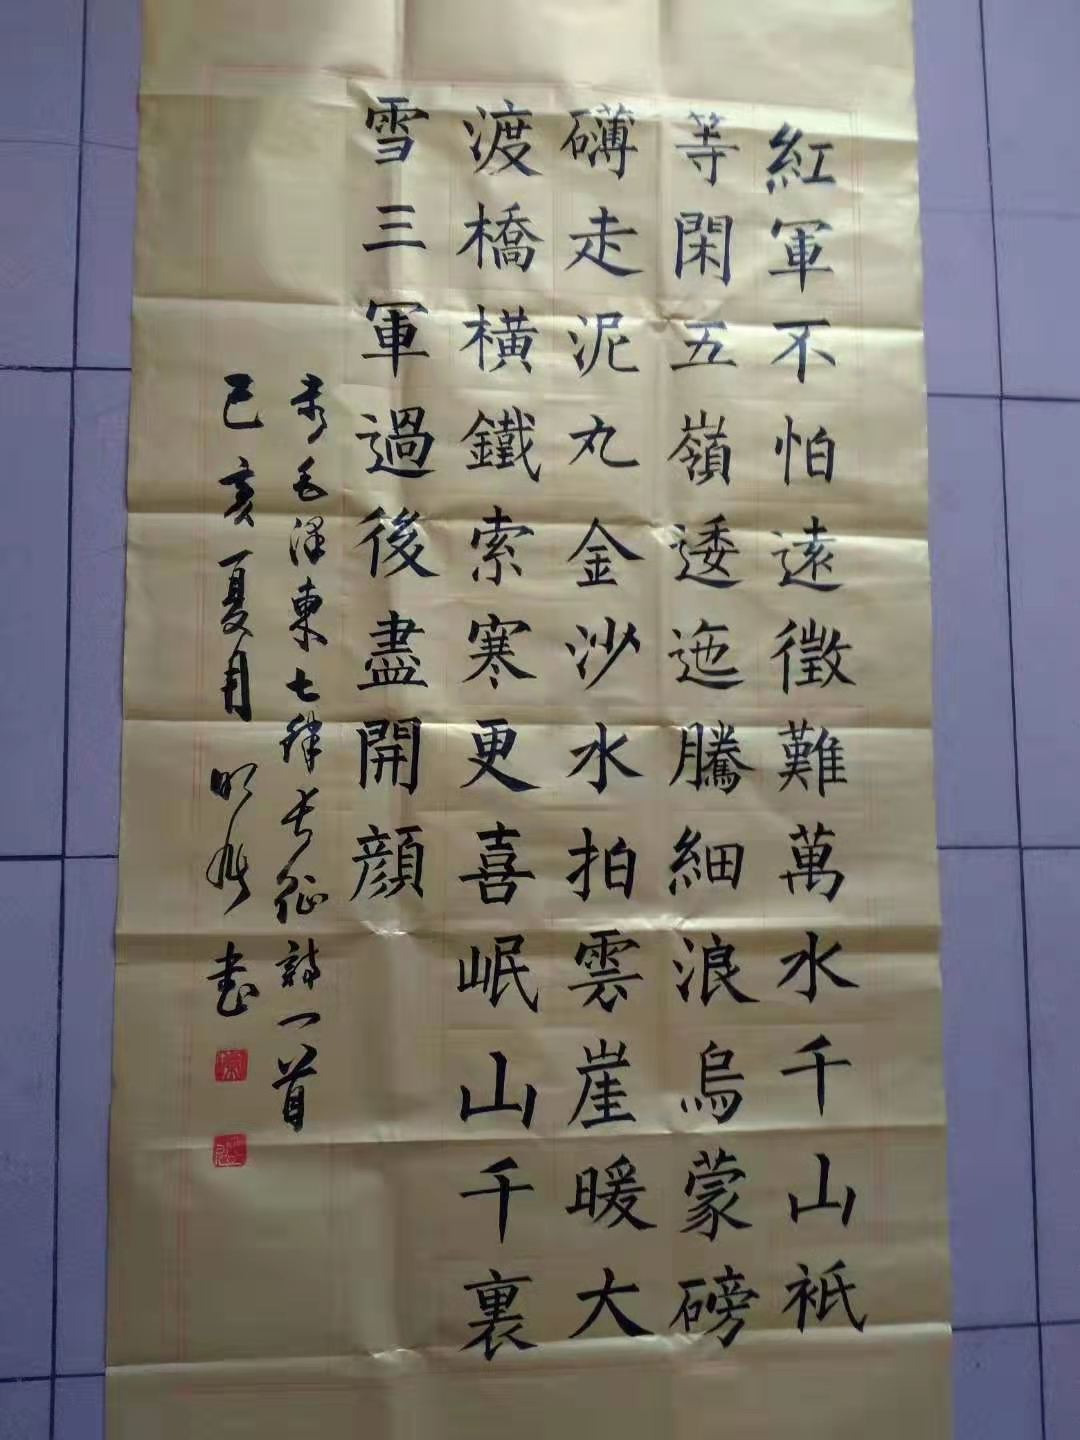 紅軍不怕遠徵難萬水千山祇
等閑五嶺逶迤騰細浪烏蒙磅
礴走泥丸金沙水拍雲崖暖大
渡橋橫鐵索寒更喜岷山千裏
雪三軍過後盡開顏
录毛澤東七律长征詩一首
己亥夏月 书